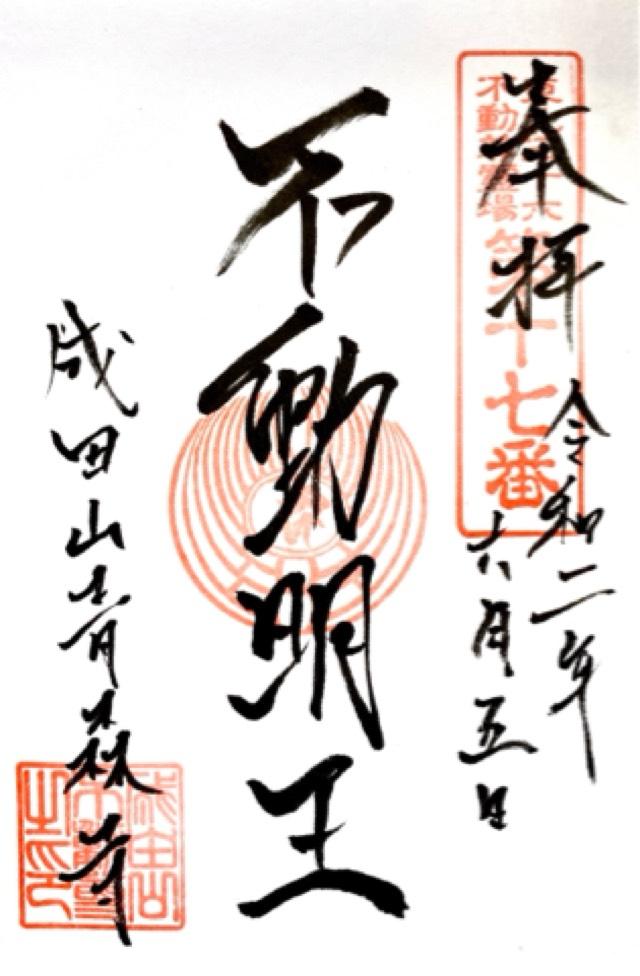 奉拝
令和二年
六月五日
不動明王
成田山青森寺
東北三十六
不動尊霊場
第十七番